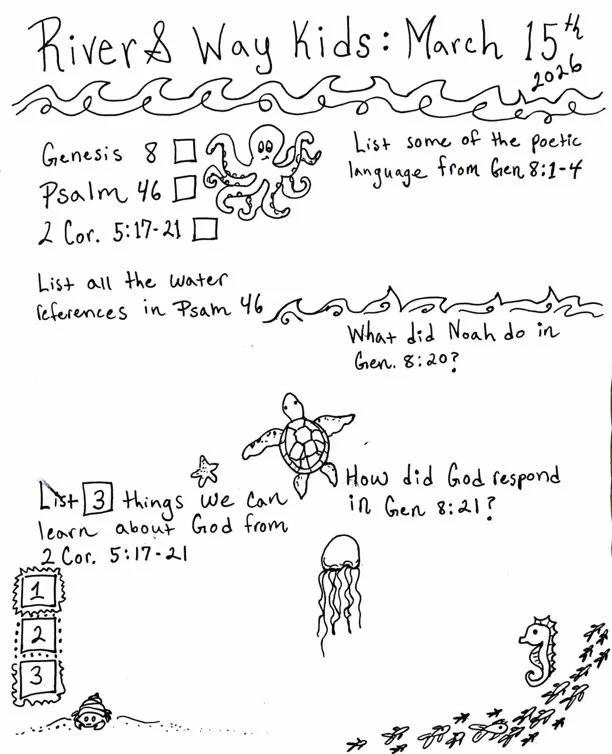 River & Way Kids: March 15th
2026
Genesis 8
Psalm 46
2 Cor. 5:17-21
List some of the poetic
language from Gen 8:1-4
List all the water
references in Psam 46
What did Noah do in
Gen. 8:20?
List 3 things we can
learn about God from
2 Cor. 5:17-21
How did God respond
in Gen 8:21?
1
2
3